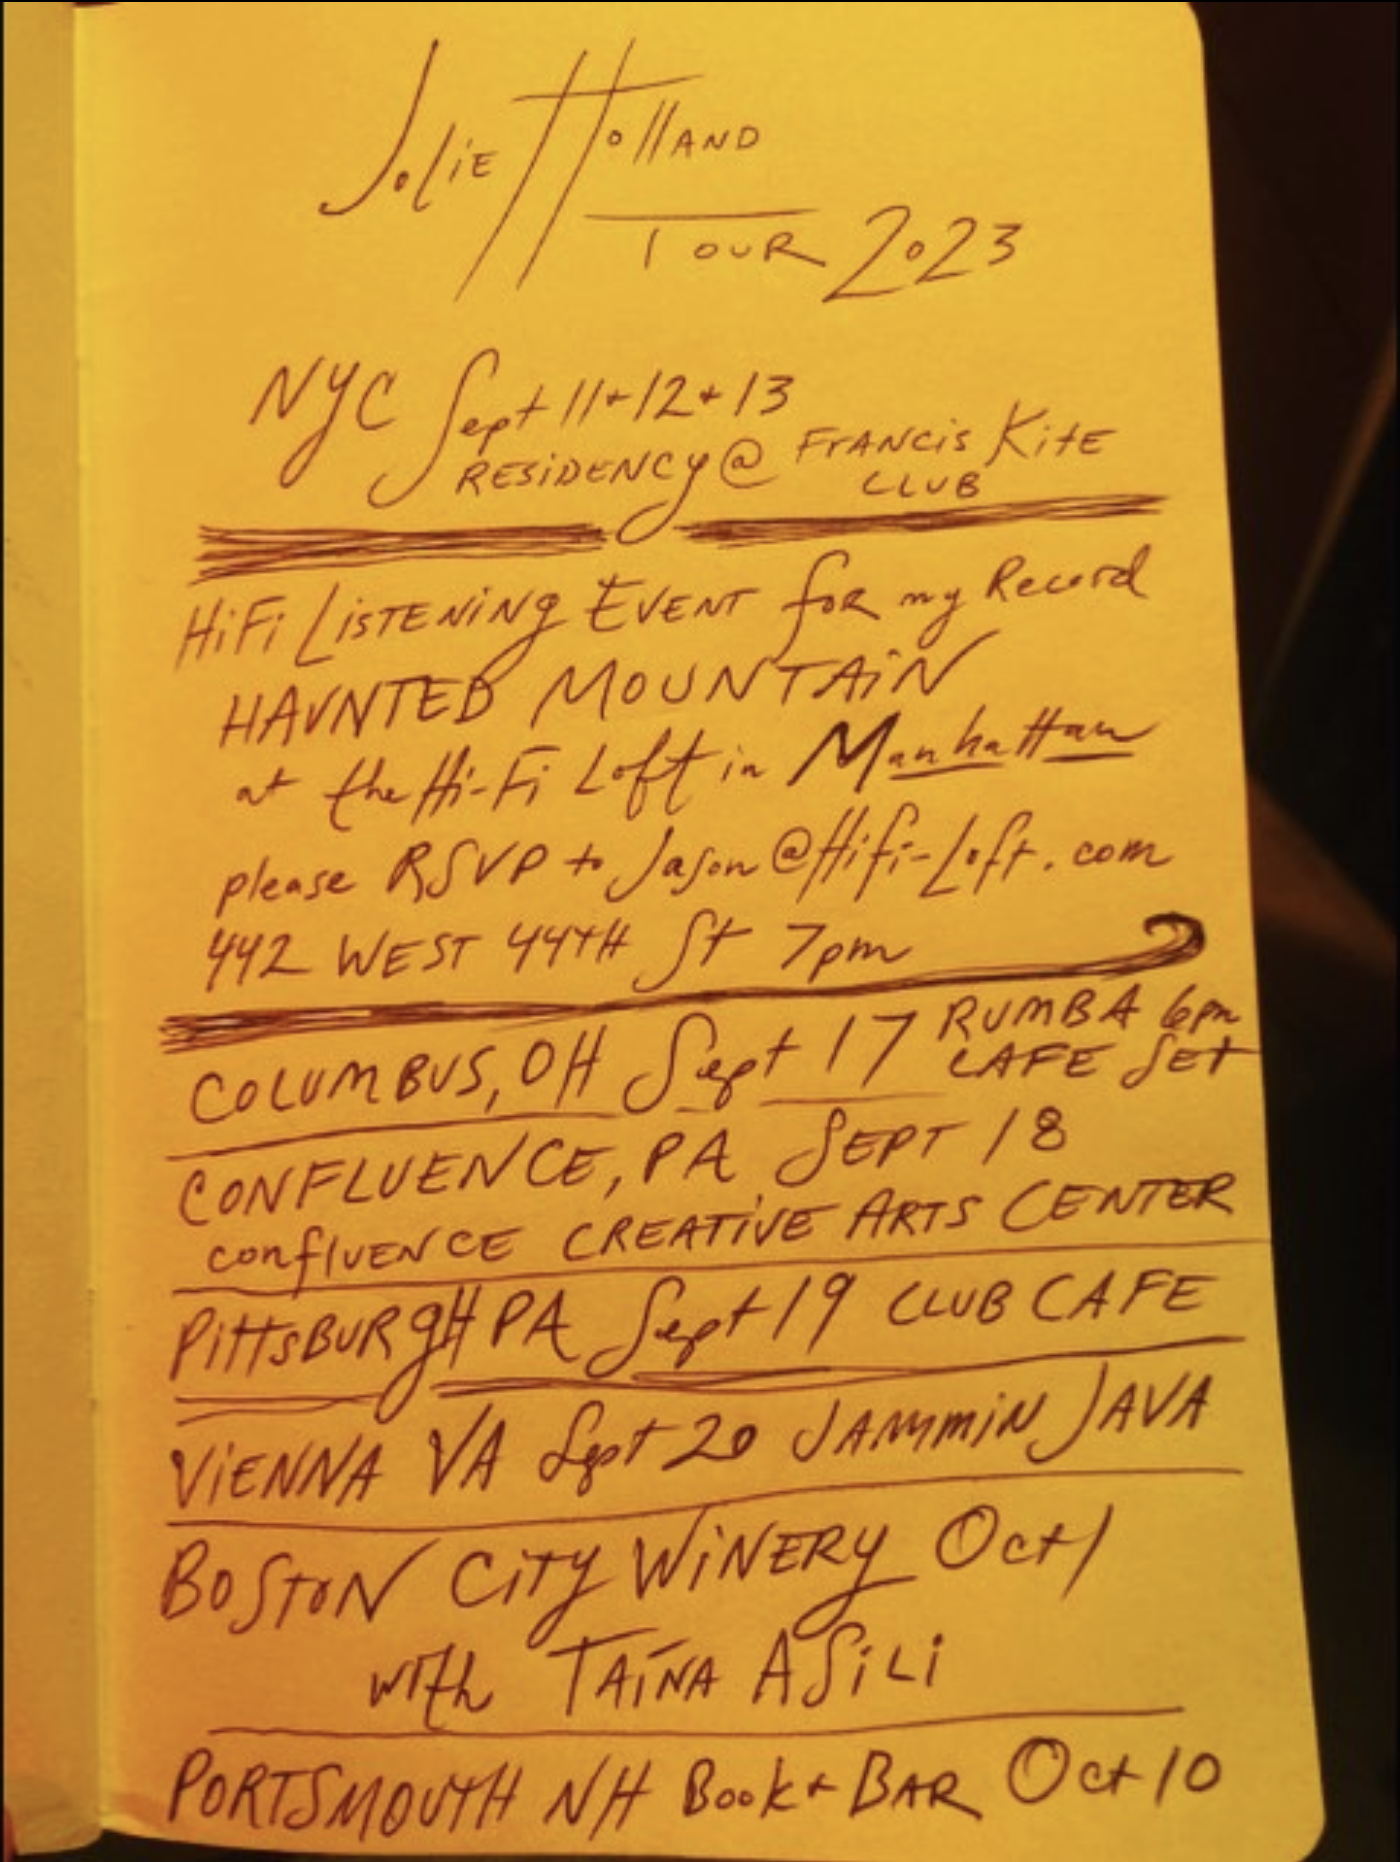 Jolie Holland
Tour 2023
NYC Sept 11+12+13
RESIDENCY @ FRANCIS KITE
CLUB
HiFi LiSTENiNg EVENT for my Record
HAUNTED MOUNTAiN
at the Hi-Fi Loft in Manhattan
please RSVP to Jason@Hifi-Loft.com
442 WEST 44TH St 7pm
COLUMBUS, OH Sept 17 RUMBA 6pm
CAFE Set
CONFLUENCE, PA SEPT 18
confLUENCE CREATiVE ARTS CENTER
PittsBURgH PA Sept 19 CLUB CAFE
ViENNA VA Sept 20 JAMMiN JAVA
BOSTON CiTY WiNERY Oct 1
with TAíNA ASiLi
PORTSMOUTH NH Book + BAR Oct 10